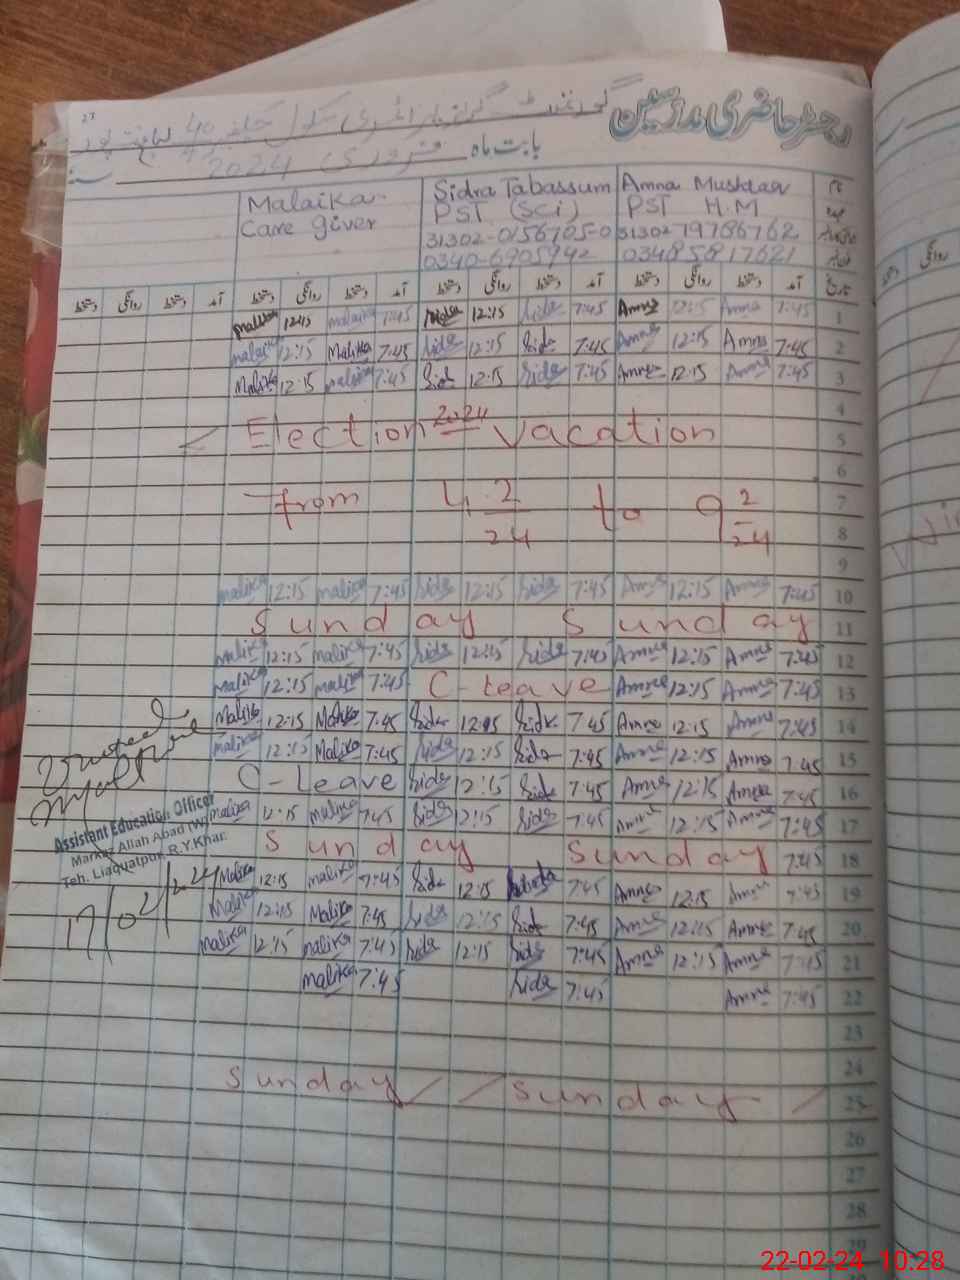 27
رجسٹر حاضری مدرسین
گورنمنٹ گرلز پرائمری سکول
بابت ماہ فروری 2024
Malaika Care giver
Sidra Tabassum PST (Sci) 31302-0156705-0 0340-6905942
Amna Mushtaq PST H.M 31302 79786762 03485817621
نام
عہدہ
تاریخ آمد دستخط روانگی دستخط آمد دستخط روانگی دستخط آمد دستخط روانگی دستخط آمد دستخط روانگی دستخط
Malaika 12:15 malaika 7:45 Sidra 12:15 Sidra 7:45 Amna 12:15 Amna 7:45 1
malaika 12:15 Malika 7:45 Sidra 12:15 Sidra 7:45 Amna 12:15 Amna 7:45 2
Malika 12:15 malika 7:45 Sidra 12:15 Sidra 7:45 Amna 12:15 Amna 7:45 3
4
< Election 2024 vacation 5
6
from 4 2/24 to 9 2/24 7
8
9
malika 12:15 malika 7:45 Sidra 12:15 Sidra 7:45 Amna 12:15 Amna 7:45 10
Sunday Sunday 11
malika 12:15 malika 7:45 Sidra 12:15 Sidra 7:45 Amna 12:15 Amna 7:45 12
malika 12:15 malika 7:45 C-leave Amna 12:15 Amna 7:45 13
Malika 12:15 Malika 7:45 Sidra 12:15 Sidra 7:45 Amna 12:15 Amna 7:45 14
malika 12:15 Malika 7:45 Sidra 12:15 Sidra 7:45 Amna 12:15 Amna 7:45 15
C-Leave Sidra 12:15 Sidra 7:45 Amna 12:15 Amna 7:45 16
malika 12:15 malika 7:45 Sidra 12:15 Sidra 7:45 Amna 12:15 Amna 7:45 17
Assistant Education Officer
Markaz Allah Abad (W)
Teh. Liaquatpur, R.Y.Khan.
17/02/2024
Sunday Sunday 7:45 18
Malika 12:15 malika 7:45 Sidra 12:15 Sidra 7:45 Amna 12:15 Amna 7:45 19
Malika 12:15 Malika 7:45 Sidra 12:15 Sidra 7:45 Amna 12:15 Amna 7:45 20
malika 12:15 malika 7:45 Sidra 12:15 Sidra 7:45 Amna 12:15 Amna 7:45 21
malika 7:45 Sidra 7:45 Amna 7:45 22
23
24
Sunday / / Sunday / 25
26
27
28
29
22-02-24 10:28